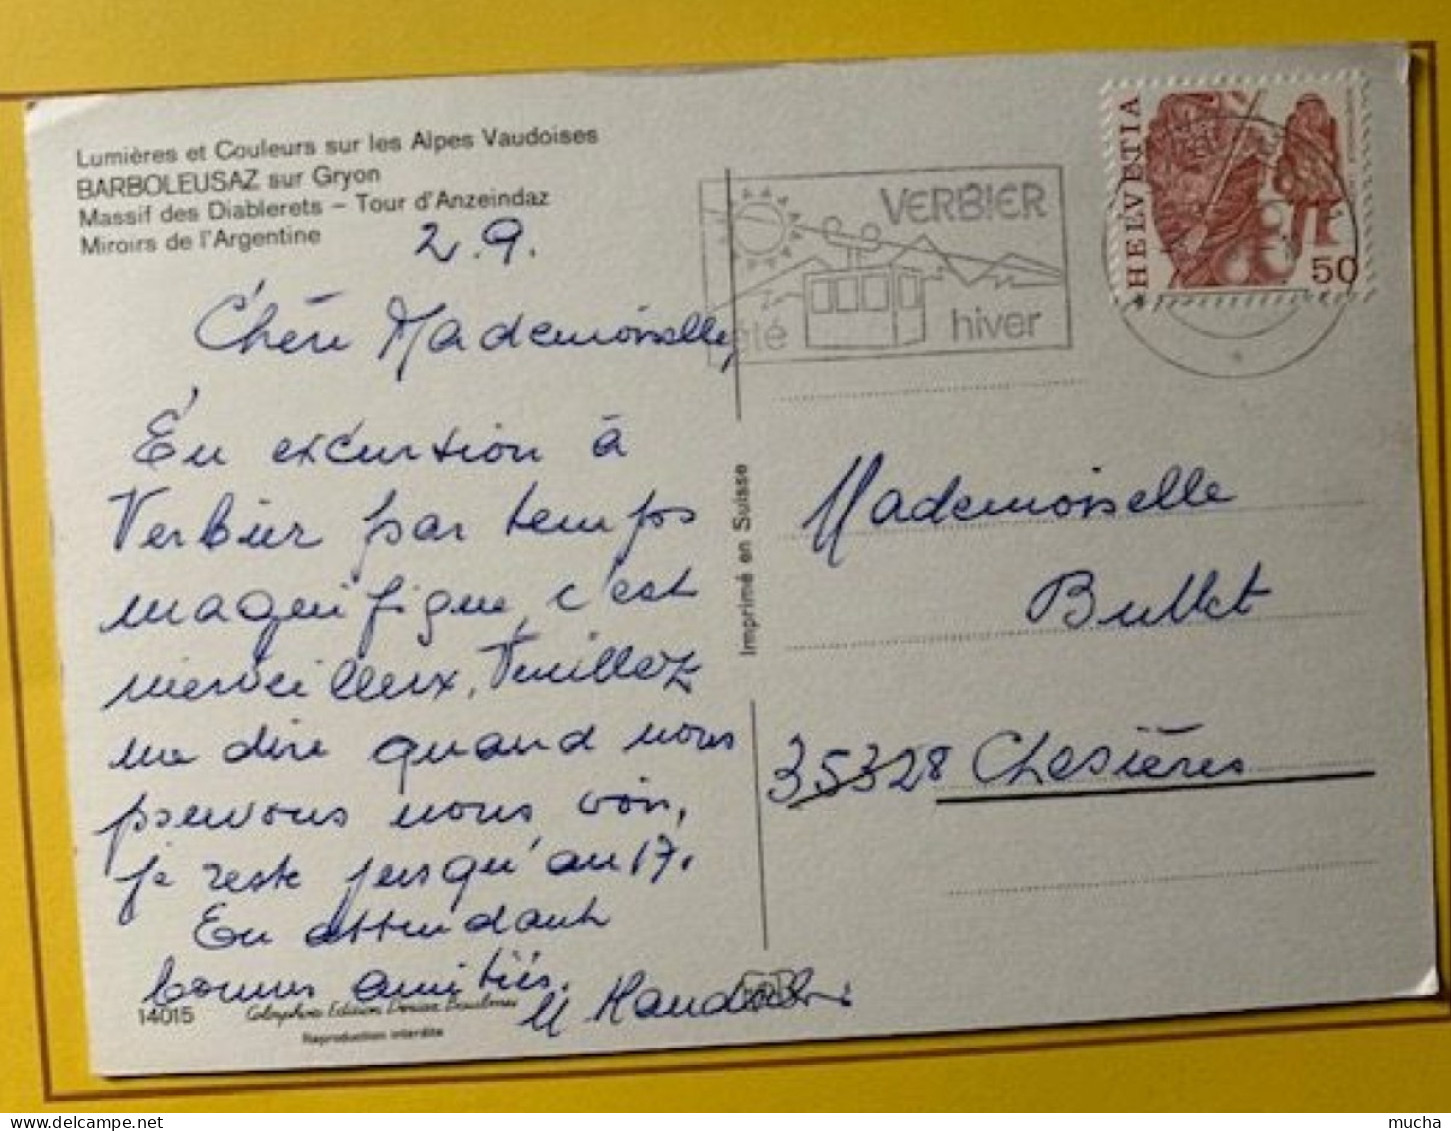 Lumières et Couleurs sur les Alpes Vaudoises
BARBOLEUSAZ sur Gryon
Massif des Diablerets – Tour d'Anzeindaz
Miroirs de l'Argentine
2.9.
Chère Mademoiselle,
En excursion à
Verbier par temps
magnifique, c'est
merveilleux, Veuillez
me dire quand nous
pouvons nous voir,
je reste jusqu'au 17.
En attendant
bonnes amitiés.
M
14015
Edition
Reproduction interdite
Imprimé en Suisse
VERBIER
été
hiver
HELVETIA
50
Mademoiselle
Bullet
35328 Chesières
mucha